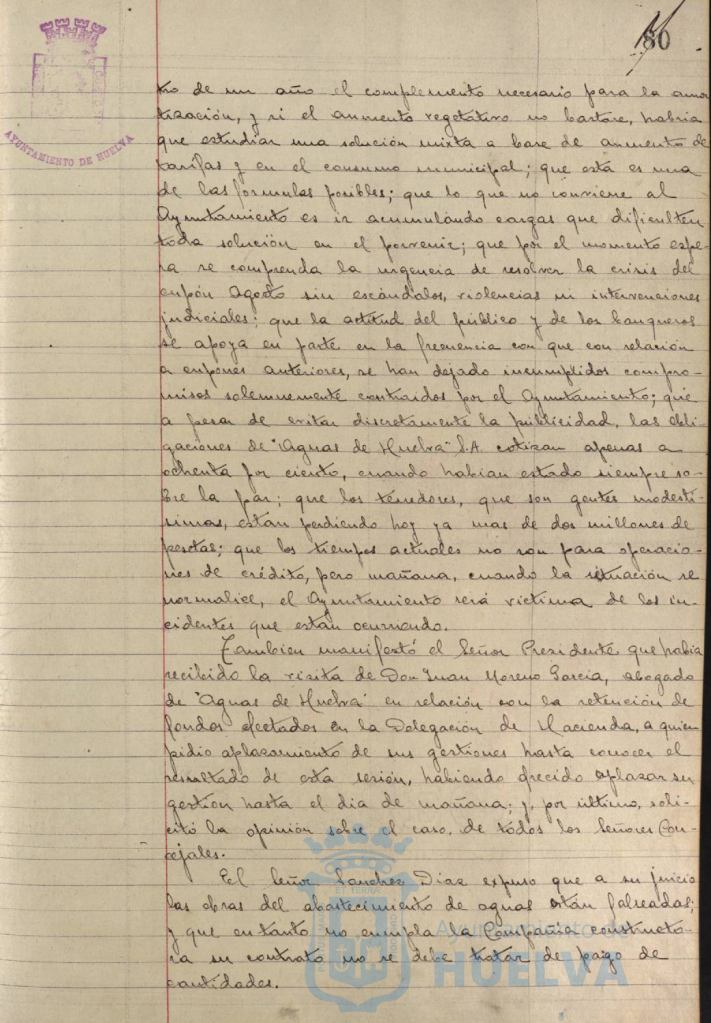 80
AYUNTAMIENTO DE HUELVA
tro de un año el complemento necesario para la amor
tización, y si el aumento vegetativo no bastare, habria
que estudiar una solución mixta a base de aumento de
tarifas y en el consumo municipal; que esta es una
de las formulas posibles; que lo que no conviene al
Ayuntamiento es ir acumulando cargas que dificulten
toda solución en el porvenir; que por el momento espe-
ra se comprenda la urgencia de resolver la crisis del
cupón Agosto sin escándalos, violencias ni intervenciones
judiciales; que la actitud del público y de los banqueros
se apoya en parte en la frecuencia con que con relación
a cupones anteriores, se han dejado incumplidos compro-
misos solemnemente contraidos por el Ayuntamiento; que
a pesar de evitar discretamente la publicidad, las obli-
gaciones de "Aguas de Huelva" S.A. cotizan apenas a
ochenta por ciento, cuando habian estado siempre so-
bre la par; que los tenedores, que son gentes modesti-
simas, estan perdiendo hoy ya mas de dos millones de
pesetas; que los tiempos actuales no son para operacio-
nes de crédito, pero mañana, cuando la situación se
normalice, el Ayuntamiento será victima de los in-
cidentes que están ocurriendo.
Tambien manifestó el Señor Presidente que habia
recibido la visita de Don Juan Moreno Garcia, abogado
de "Aguas de Huelva" en relación con la retención de
fondos efectados en la Delegación de Hacienda, a quien
pidio aplazamiento de sus gestiones hasta conocer el
resultado de esta sesión, habiendo ofrecido aplazar su
gestión hasta el dia de mañana; y, por último, soli-
citó la opinión sobre el caso, de todos los Señores Con-
cejales.
El Señor Sanchez Diaz expuso que a su juicio
las obras del abastecimiento de aguas están falseadas;
y que en tanto no cumpla la Compañia constructo-
ra su contrato no se debe tratar de pago de
cantidades.
Ayuntamiento de
HUELVA